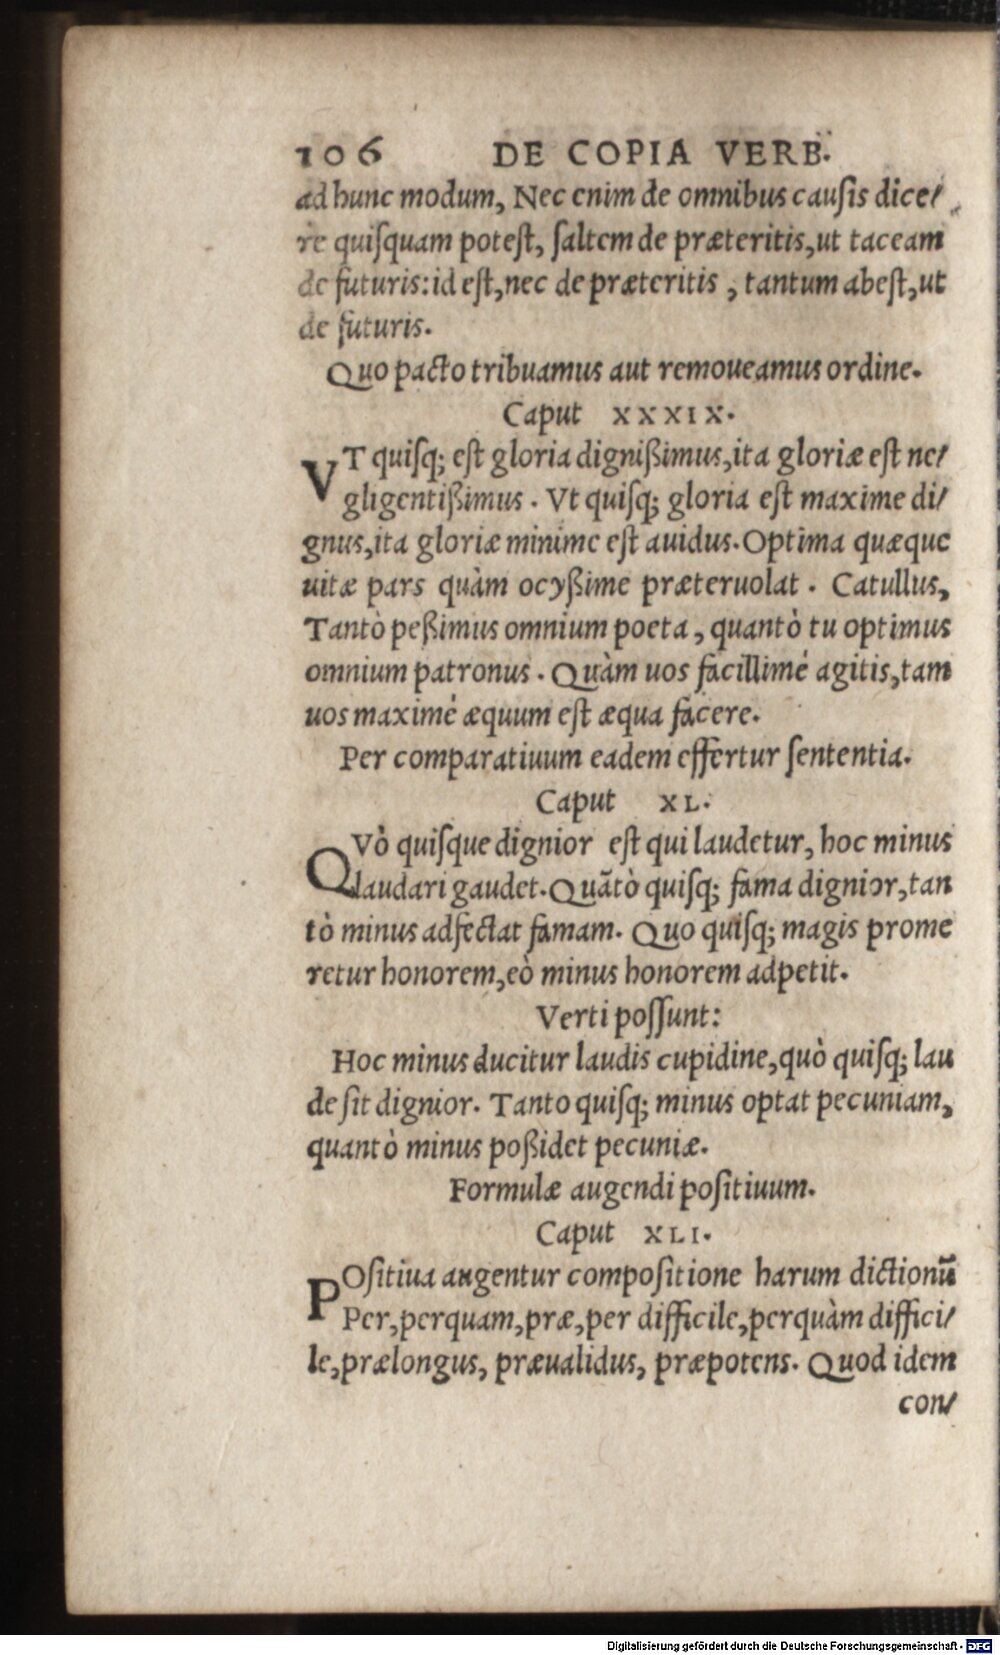 106 DE COPIA VERB.
ad hunc modum, Nec enim de omnibus causis dice/
re quisquam potest, saltem de præteritis, ut taceam
de futuris: id est, nec de præteritis, tantum abest, ut
de futuris.
Quo pacto tribuamus aut remoueamus ordine.
Caput XXXIX.
VT quisq; est gloria dignißimus, ita gloriæ est ne/
gligentißimus. Vt quisq; gloria est maxime di/
gnus, ita gloriæ minime est auidus. Optima quæque
uitæ pars quàm ocyßime præteruolat. Catullus,
Tantò peßimus omnium poeta, quantò tu optimus
omnium patronus. Quàm uos facillimé agitis, tam
uos maximé æquum est æqua facere.
Per comparatiuum eadem effertur sententia.
Caput XL.
QVò quisque dignior est qui laudetur, hoc minus
laudari gaudet. Quãtò quisq; fama dignior, tan
tò minus adfectat famam. Quo quisq; magis prome
retur honorem, eò minus honorem adpetit.
Verti possunt:
Hoc minus ducitur laudis cupidine, quò quisq; lau
de sit dignior. Tanto quisq; minus optat pecuniam,
quantò minus poßidet pecuniæ.
Formulæ augendi positiuum.
Caput XLI.
POsitiua augentur compositione harum dictionũ
Per, perquam, præ, per difficile, perquàm diffici/
le, prælongus, præualidus, præpotens. Quod idem
con/
Digitalisierung gefördert durch die Deutsche Forschungsgemeinschaft - DFG